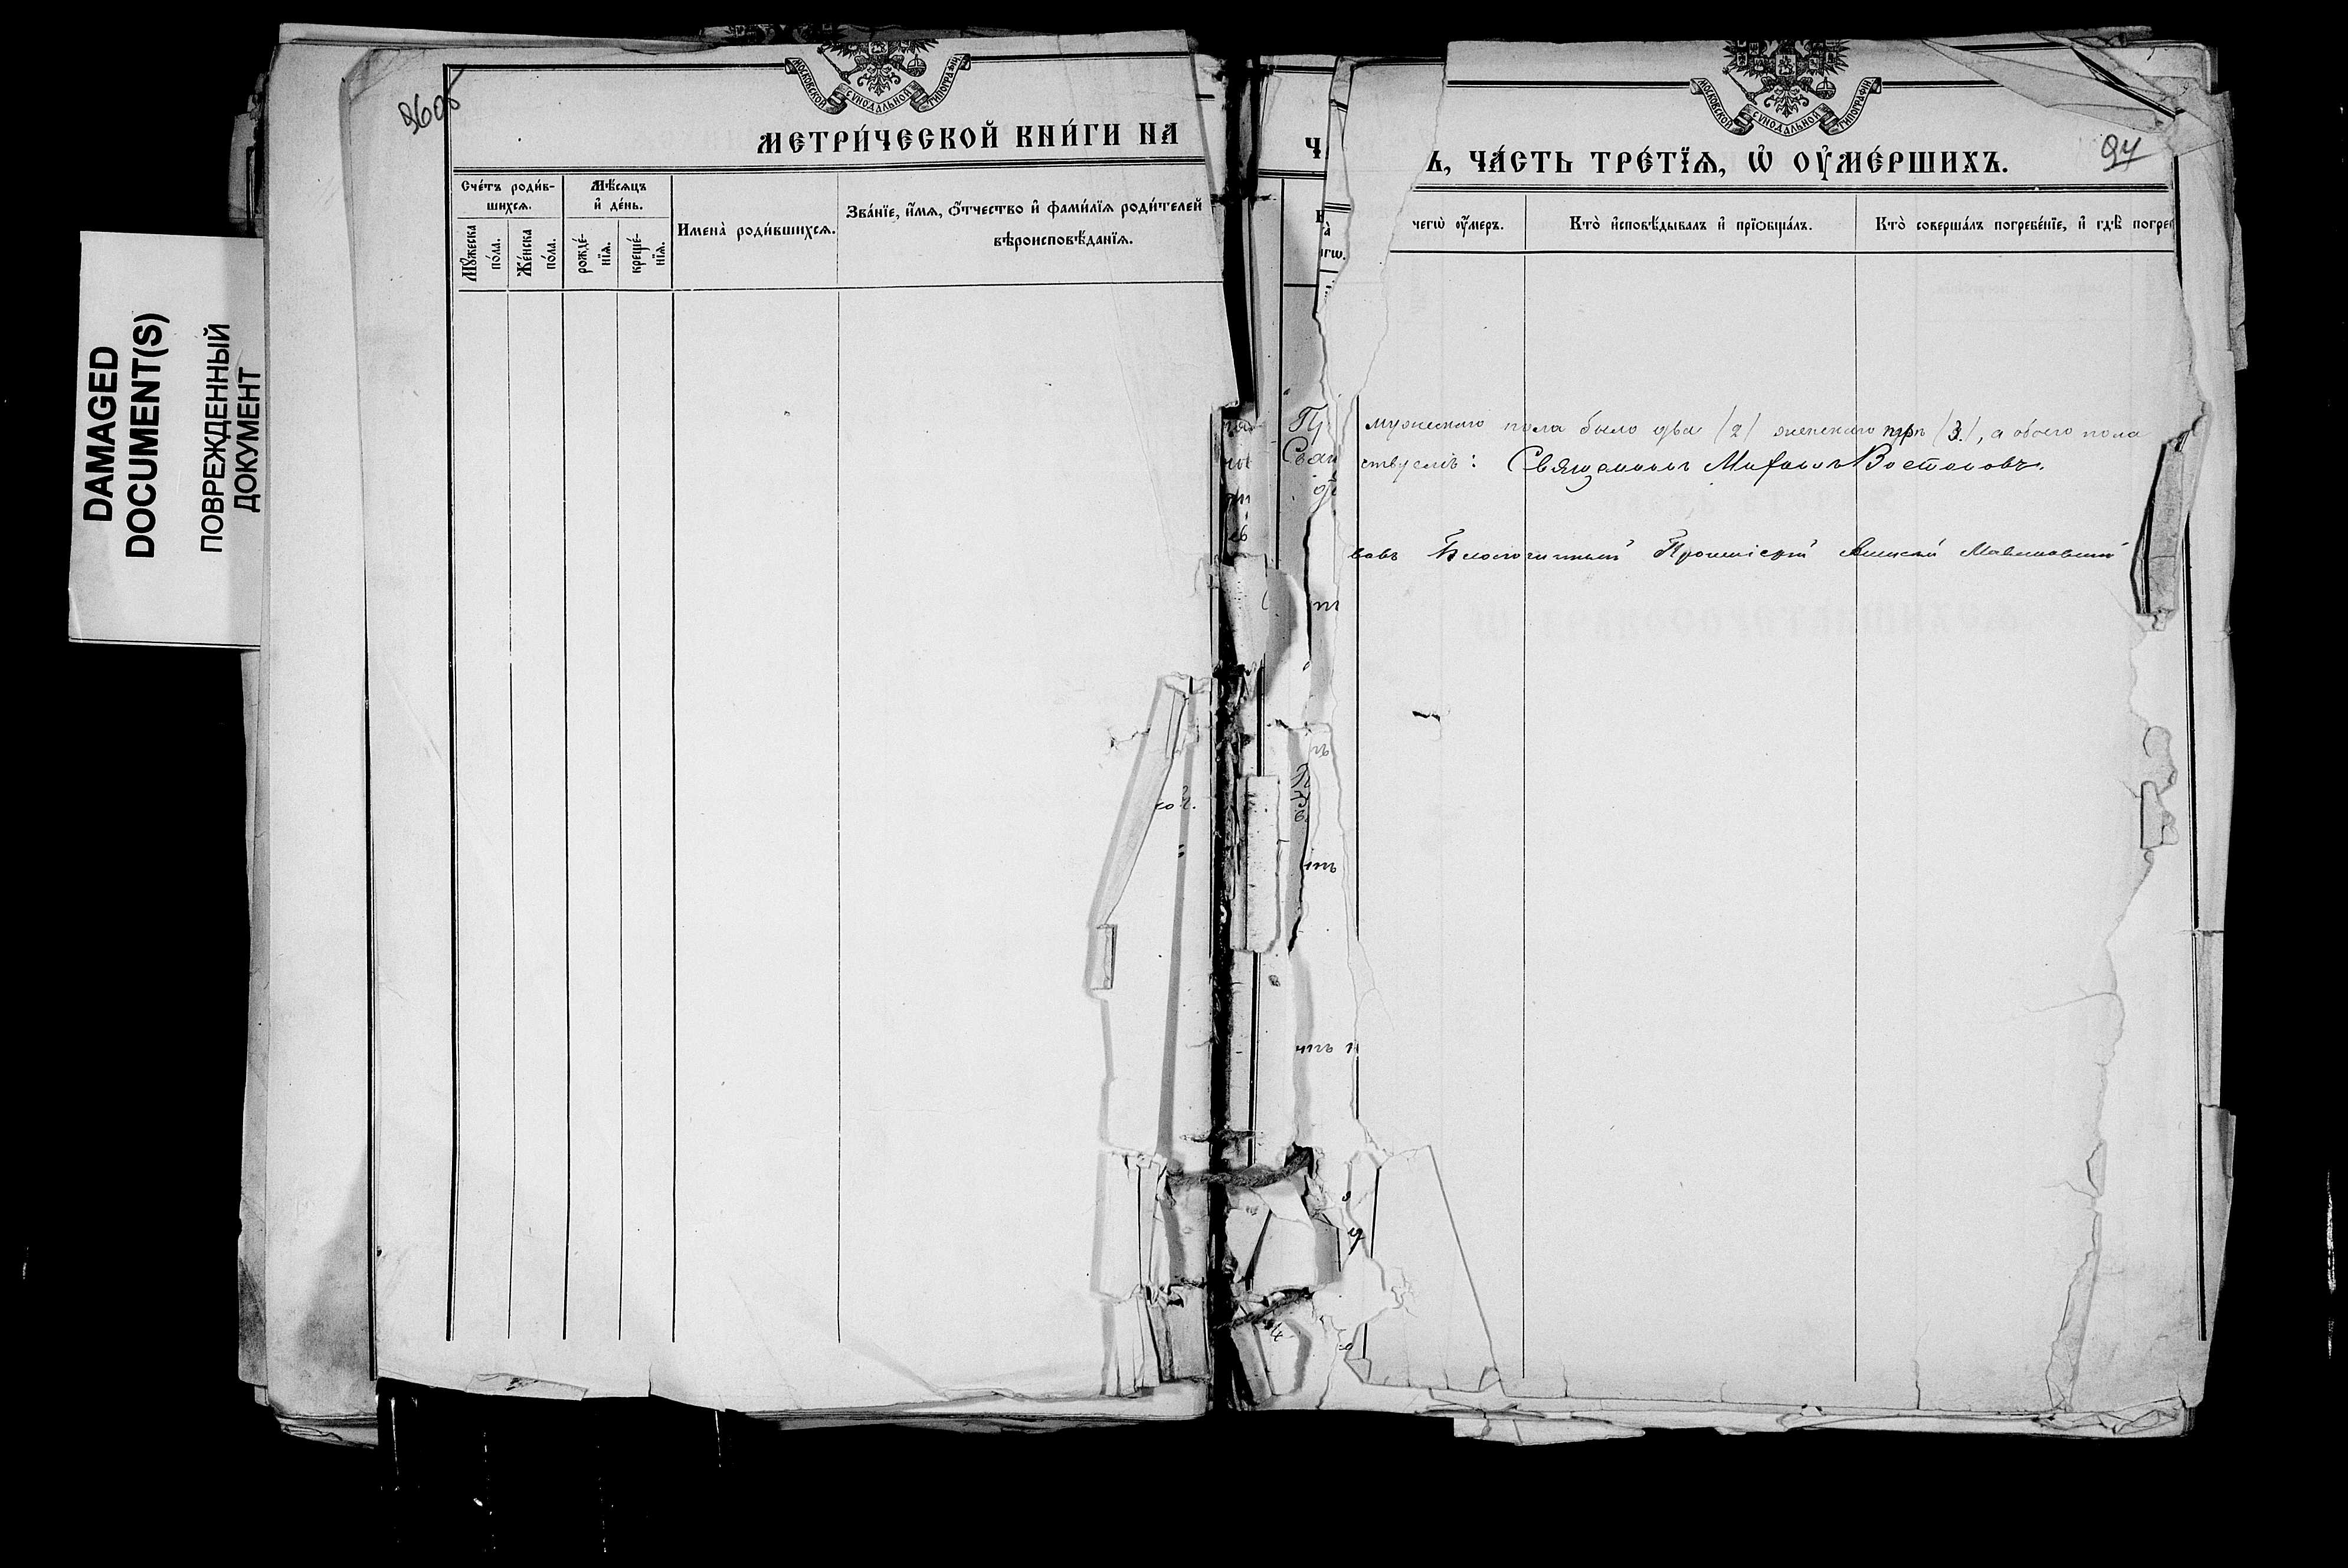 DAMAGED
DOCUMENT(S)
ПОВРЕЖДЕННЫЙ
ДОКУМЕНТ
МОСКОВСКОЙ СѴНОДАЛЬНОЙ ТИПОГРАФІИ
МЕТРИ́ЧЕСКОЙ КНИ́ГИ НА
Сче́тъ роди́в-
шихсѧ.
Мѣ́сѧцъ
и҆ де́нь.
Мꙋ́жеска
по́ла.
Же́нска
по́ла.
рожде́-
нїѧ.
креще́-
нїѧ.
Имена̀ роди́вшихсѧ.
Зва́нїе, и҆́мѧ, ѻ҆́тчество и҆ фами́лїѧ роди́телей
вѣроисповѣ́данїѧ.
МОСКОВСКОЙ СѴНОДАЛЬНОЙ ТИПОГРАФІИ
Ъ, ЧА́СТЬ ТРЕ́ТЇѦ, Ѡ҆ ОУ҆МЕ́РШИХЪ.
94
чегѡ оу҆́меръ.
Кто̀ и҆сповѣ́дывалъ и҆ прїѡбща́лъ.
Кто̀ соверша́лъ погребе́нїе, и҆ гдѣ̀ погре
мужескаго пола было два /2/ женскаго три /3/, а обоего пола
ствуемъ: Священникъ Михаилъ Востоковъ.
Благочинный Протоіерей Алексѣй